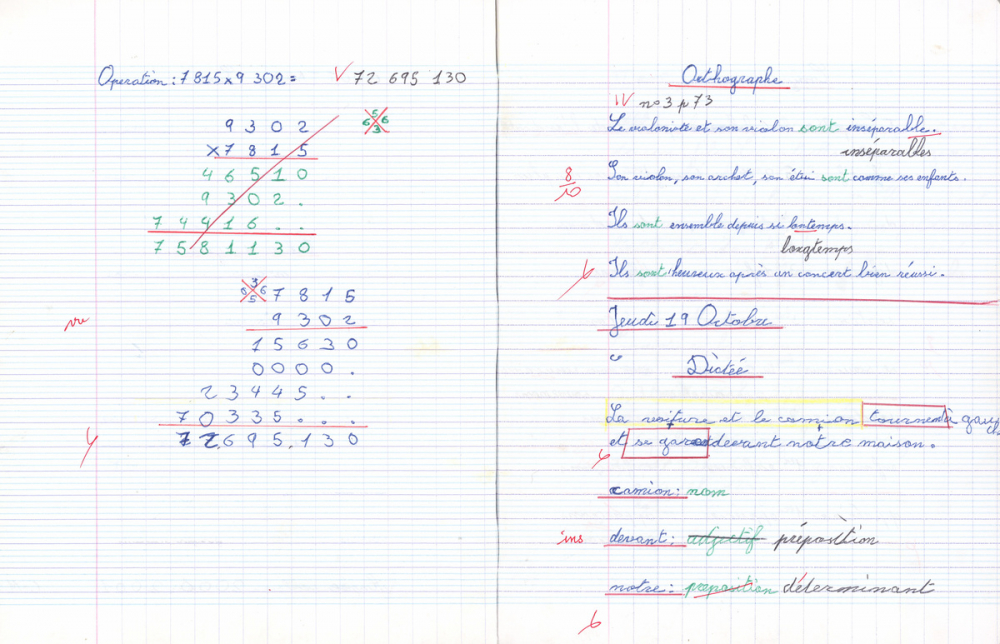 Operation : 7 815 x 9 302 = V 72 695 130
9 3 0 2
x 7 8 1 5
4 6 5 1 0
9 3 0 2 .
7 4 4 1 6 . .
7 5 8 1 1 3 0
7 8 1 5
9 3 0 2
vu
1 5 6 3 0
0 0 0 0 .
2 3 4 4 5 . .
7 0 3 3 5 . . .
7 2 6 9 5 . 1 3 0
Orthographe
IV no 3 p 73
Le violoniste et son violon sont inséparable.
inséparables
8/10
Son violon, son archet, son étui sont comme ses enfants.
Ils sont ensemble depuis si lontemps.
longtemps
Ils sont heureux après un concert bien réussi.
Jeudi 19 Octobre
Dictée
La voiture et le camion tournent à gauche
et se devant notre maison.
camion : nom
ins devant : adjectif préposition
notre : preposition déterminant